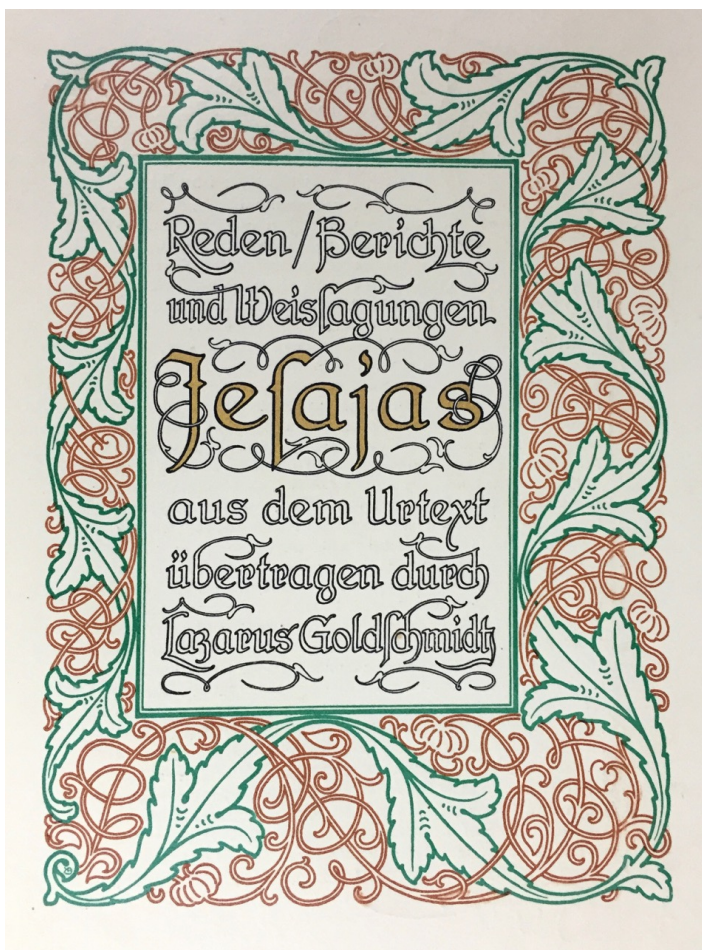 Reden/Berichte
und Weisſagungen
Jeſajas
aus dem Urtext
übertragen durch
Lazarus Goldſchmidt